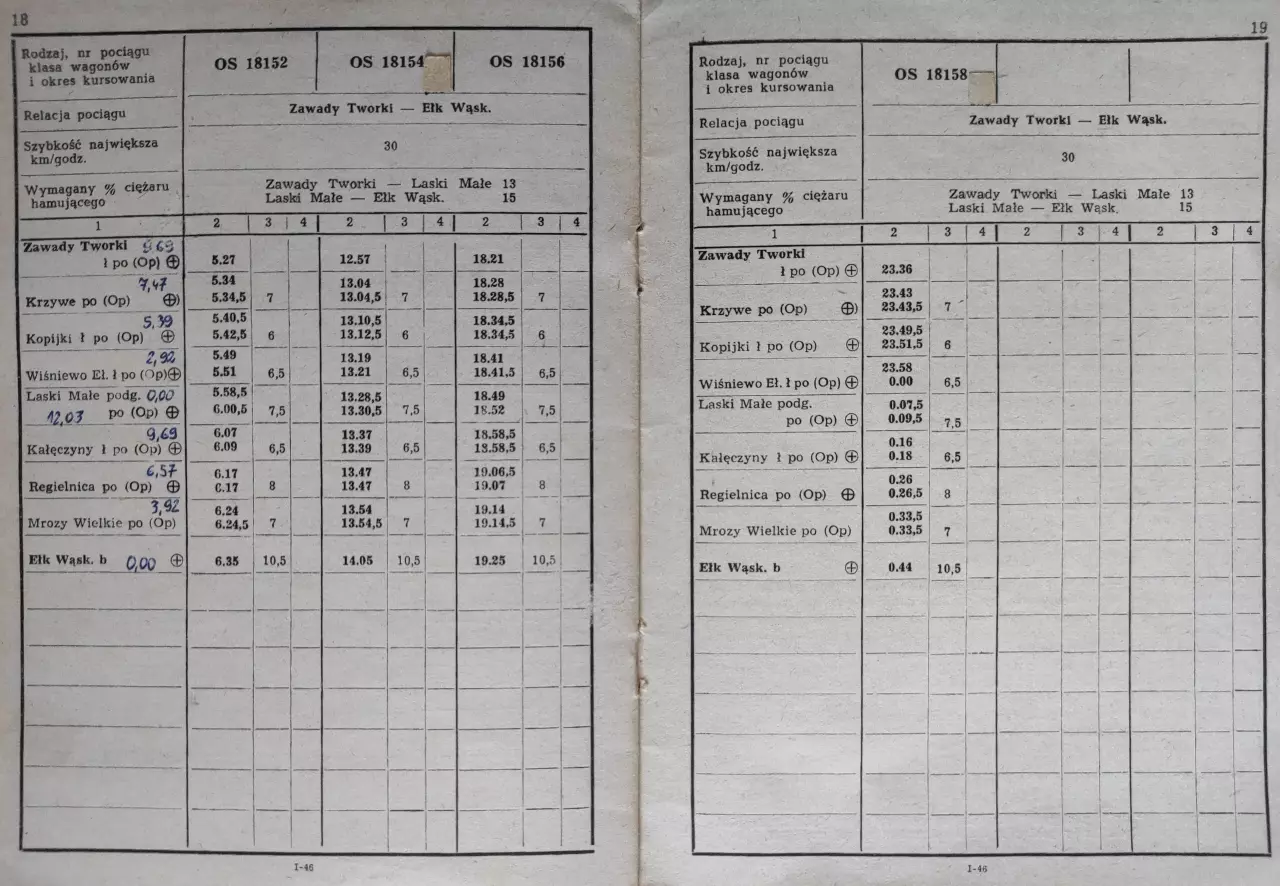 18
Rodzaj, nr pociągu
klasa wagonów
i okres kursowania
OS 18152 OS 18154 OS 18156
Relacja pociągu
Zawady Tworki — Ełk Wąsk.
Szybkość największa
km/godz.
30
Wymagany % ciężaru
hamującego
Zawady Tworki — Laski Małe 13
Laski Małe — Ełk Wąsk. 15
1 2 3 4 2 3 4 2 3 4
Zawady Tworki 9,69
ł po (Op) ⊕ 5.27 12.57 18.21
7,47 5.34 13.04 18.28
Krzywe po (Op) ⊕) 5.34,5 7 13.04,5 7 18.28,5 7
5,39 5.40,5 13.10,5 18.34,5
Kopijki ł po (Op) ⊕ 5.42,5 6 13.12,5 6 18.34,5 6
2,92 5.49 13.19 18.41
Wiśniewo Eł. ł po (Op)⊕ 5.51 6,5 13.21 6,5 18.41,5 6,5
Laski Małe podg. 0,00 5.58,5 13.28,5 18.49
12,03 po (Op) ⊕ 6.00,5 7,5 13.30,5 7,5 18.52 7,5
9,69 6.07 13.37 18.58,5
Kałęczyny ł po (Op) ⊕ 6.09 6,5 13.39 6,5 18.58,5 6,5
6,57 6.17 13.47 19.06,5
Regielnica po (Op) ⊕ 6.17 8 13.47 8 19.07 8
3,92 6.24 13.54 19.14
Mrozy Wielkie po (Op) 6.24,5 7 13.54,5 7 19.14,5 7
Ełk Wąsk. b 0,00 ⊕ 6.35 10,5 14.05 10,5 19.25 10,5
I-46
19
Rodzaj, nr pociągu
klasa wagonów
i okres kursowania
OS 18158
Relacja pociągu
Zawady Tworki — Ełk Wąsk.
Szybkość największa
km/godz.
30
Wymagany % ciężaru
hamującego
Zawady Tworki — Laski Małe 13
Laski Małe — Ełk Wąsk. 15
1 2 3 4 2 3 4 2 3 4
Zawady Tworki
ł po (Op) ⊕ 23.36
23.43
Krzywe po (Op) ⊕) 23.43,5 7
23.49,5
Kopijki ł po (Op) ⊕ 23.51,5 6
23.58
Wiśniewo Eł. ł po (Op) ⊕ 0.00 6,5
Laski Małe podg. 0.07,5
po (Op) ⊕ 0.09,5 7,5
0.16
Kałęczyny ł po (Op) ⊕ 0.18 6,5
0.26
Regielnica po (Op) ⊕ 0.26,5 8
0.33,5
Mrozy Wielkie po (Op) 0.33,5 7
Ełk Wąsk. b ⊕ 0.44 10,5
I-46